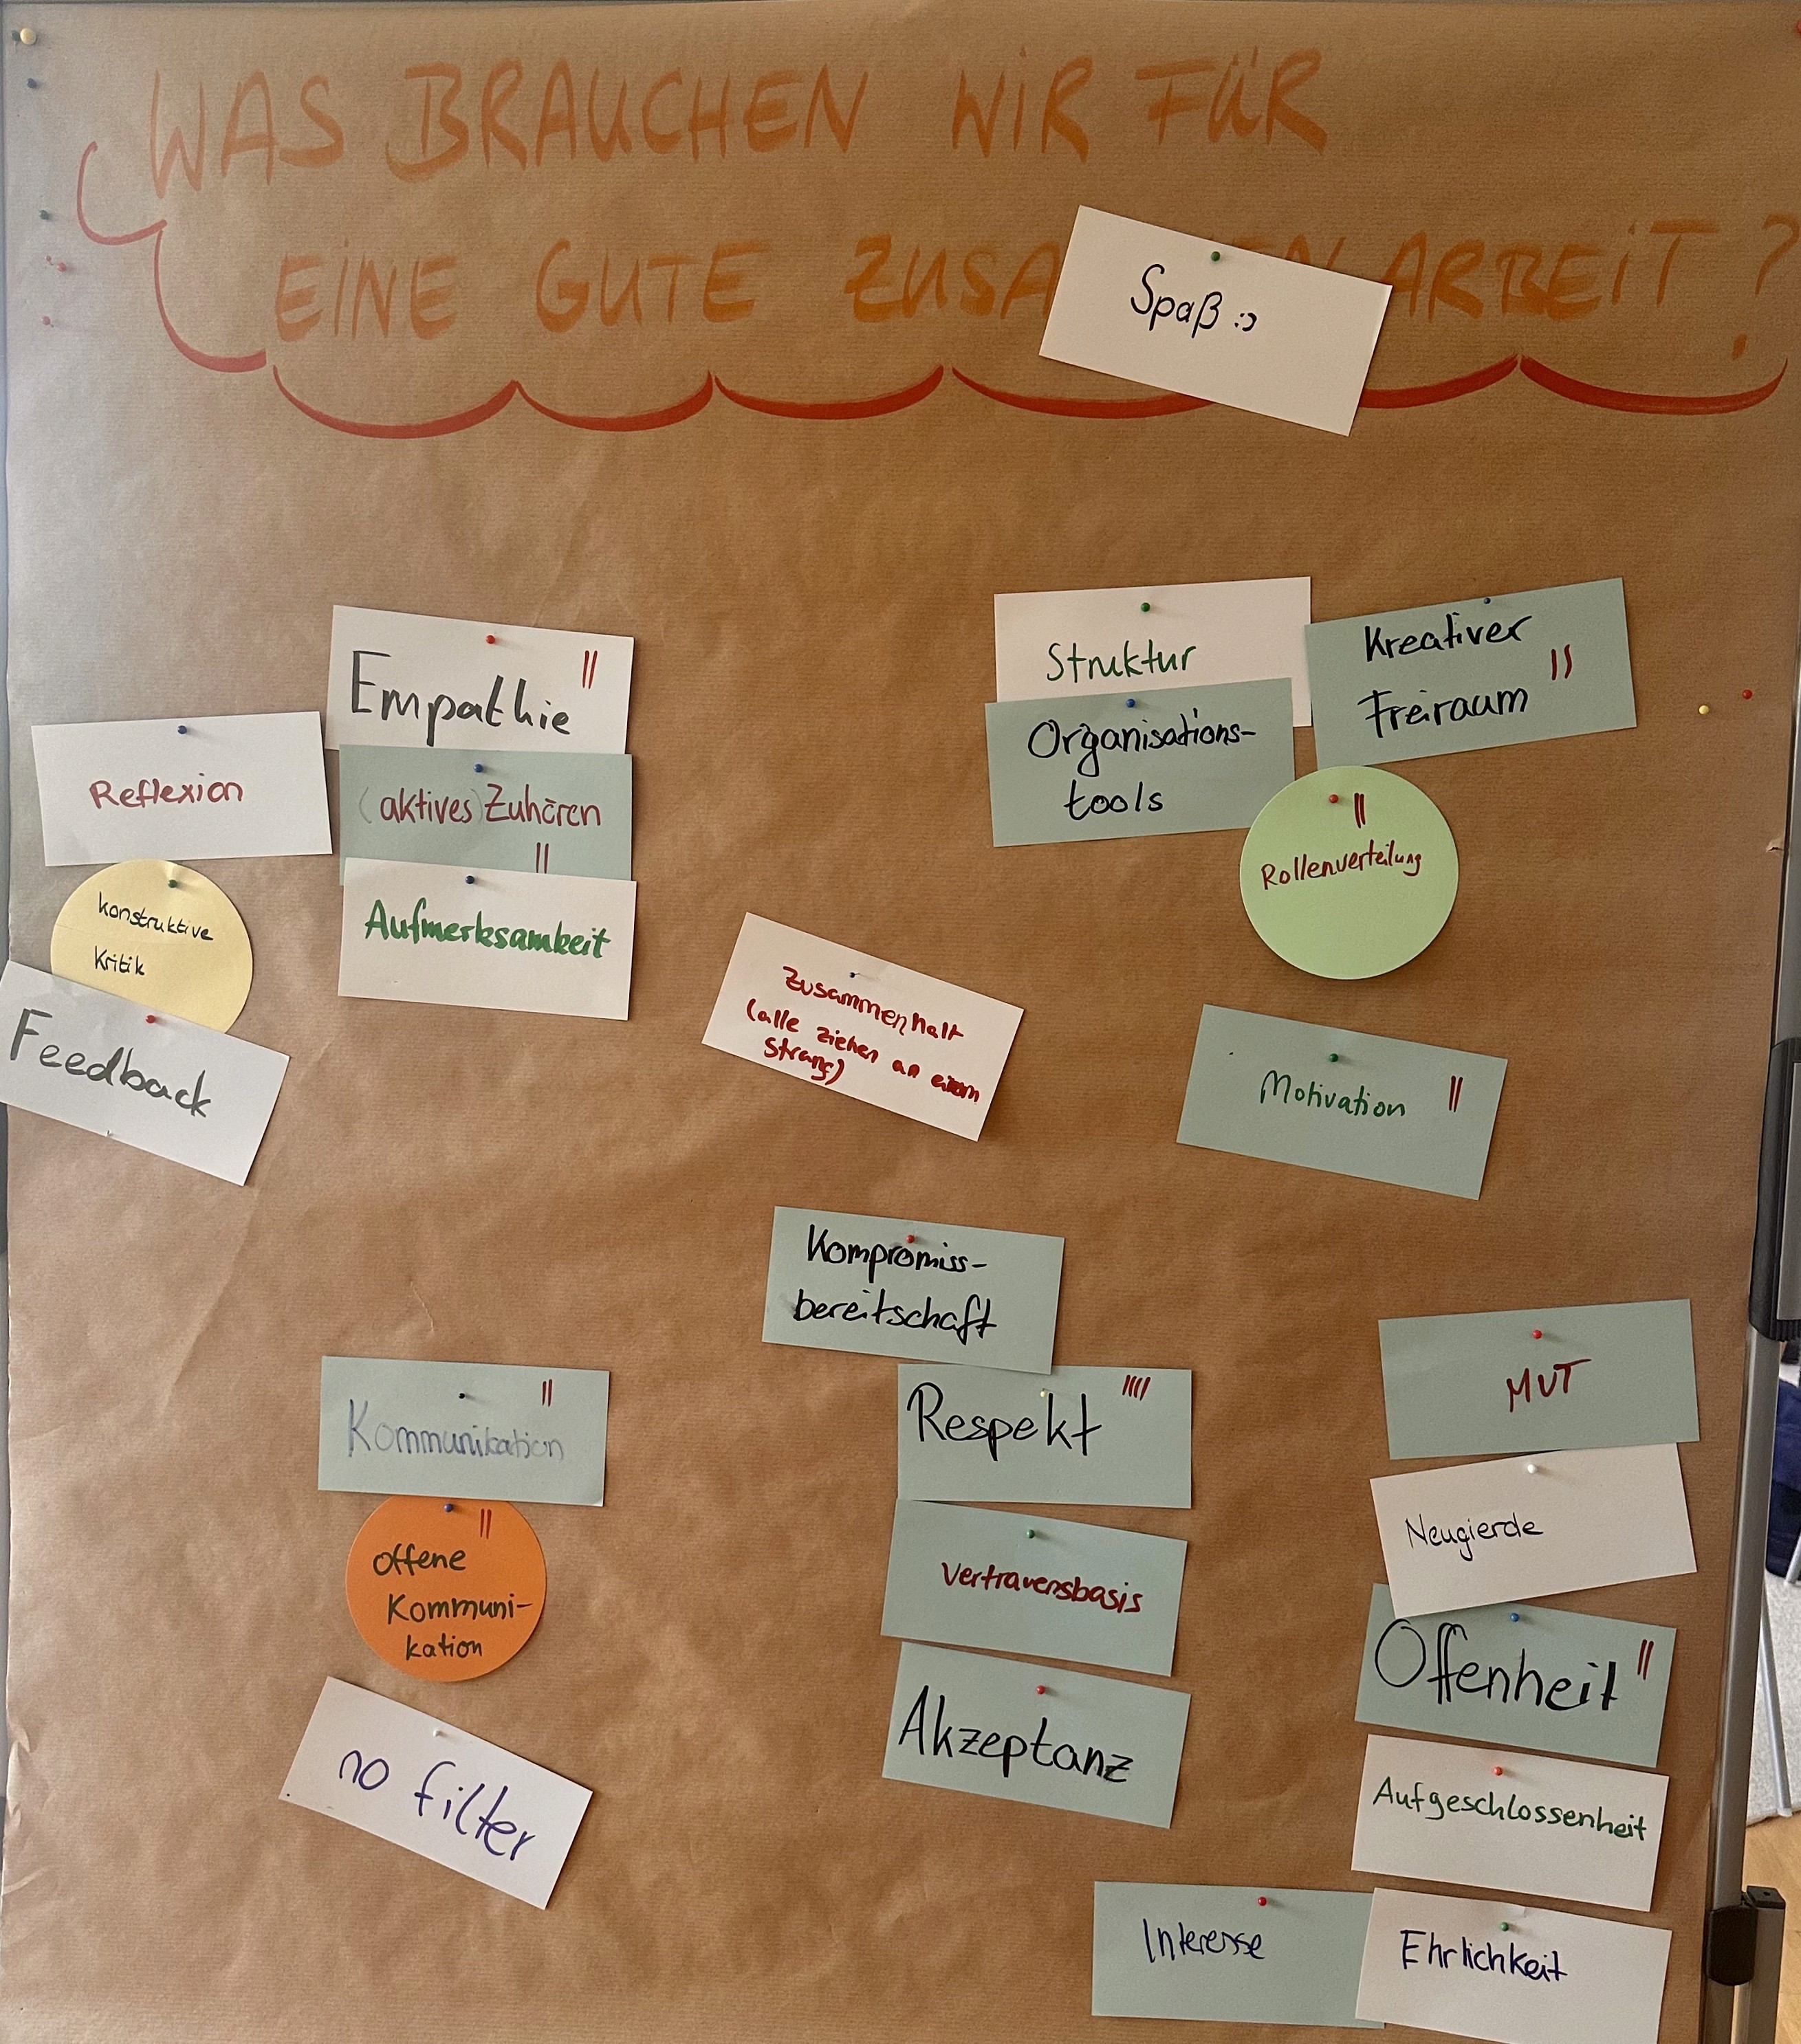 WAS BRAUCHEN WIR FÜR
EINE GUTE ZUSA EN ARBEIT ?
Spaß :)
Empathie ||
Reflexion
(aktives) Zuhören
||
Aufmerksamkeit
konstruktive
Kritik
Feedback
Struktur
Organisations-
tools
Kreativer
Freiraum ||
||
Rollenverteilung
Zusammenhalt
(alle ziehen an einem
Strang)
Motivation ||
Kompromiss-
bereitschaft
Kommunikation ||
||
offene
Kommuni-
kation
no filter
Respekt ||||
Vertrauensbasis
Akzeptanz
MUT
Neugierde
Offenheit ||
Aufgeschlossenheit
Interesse
Ehrlichkeit